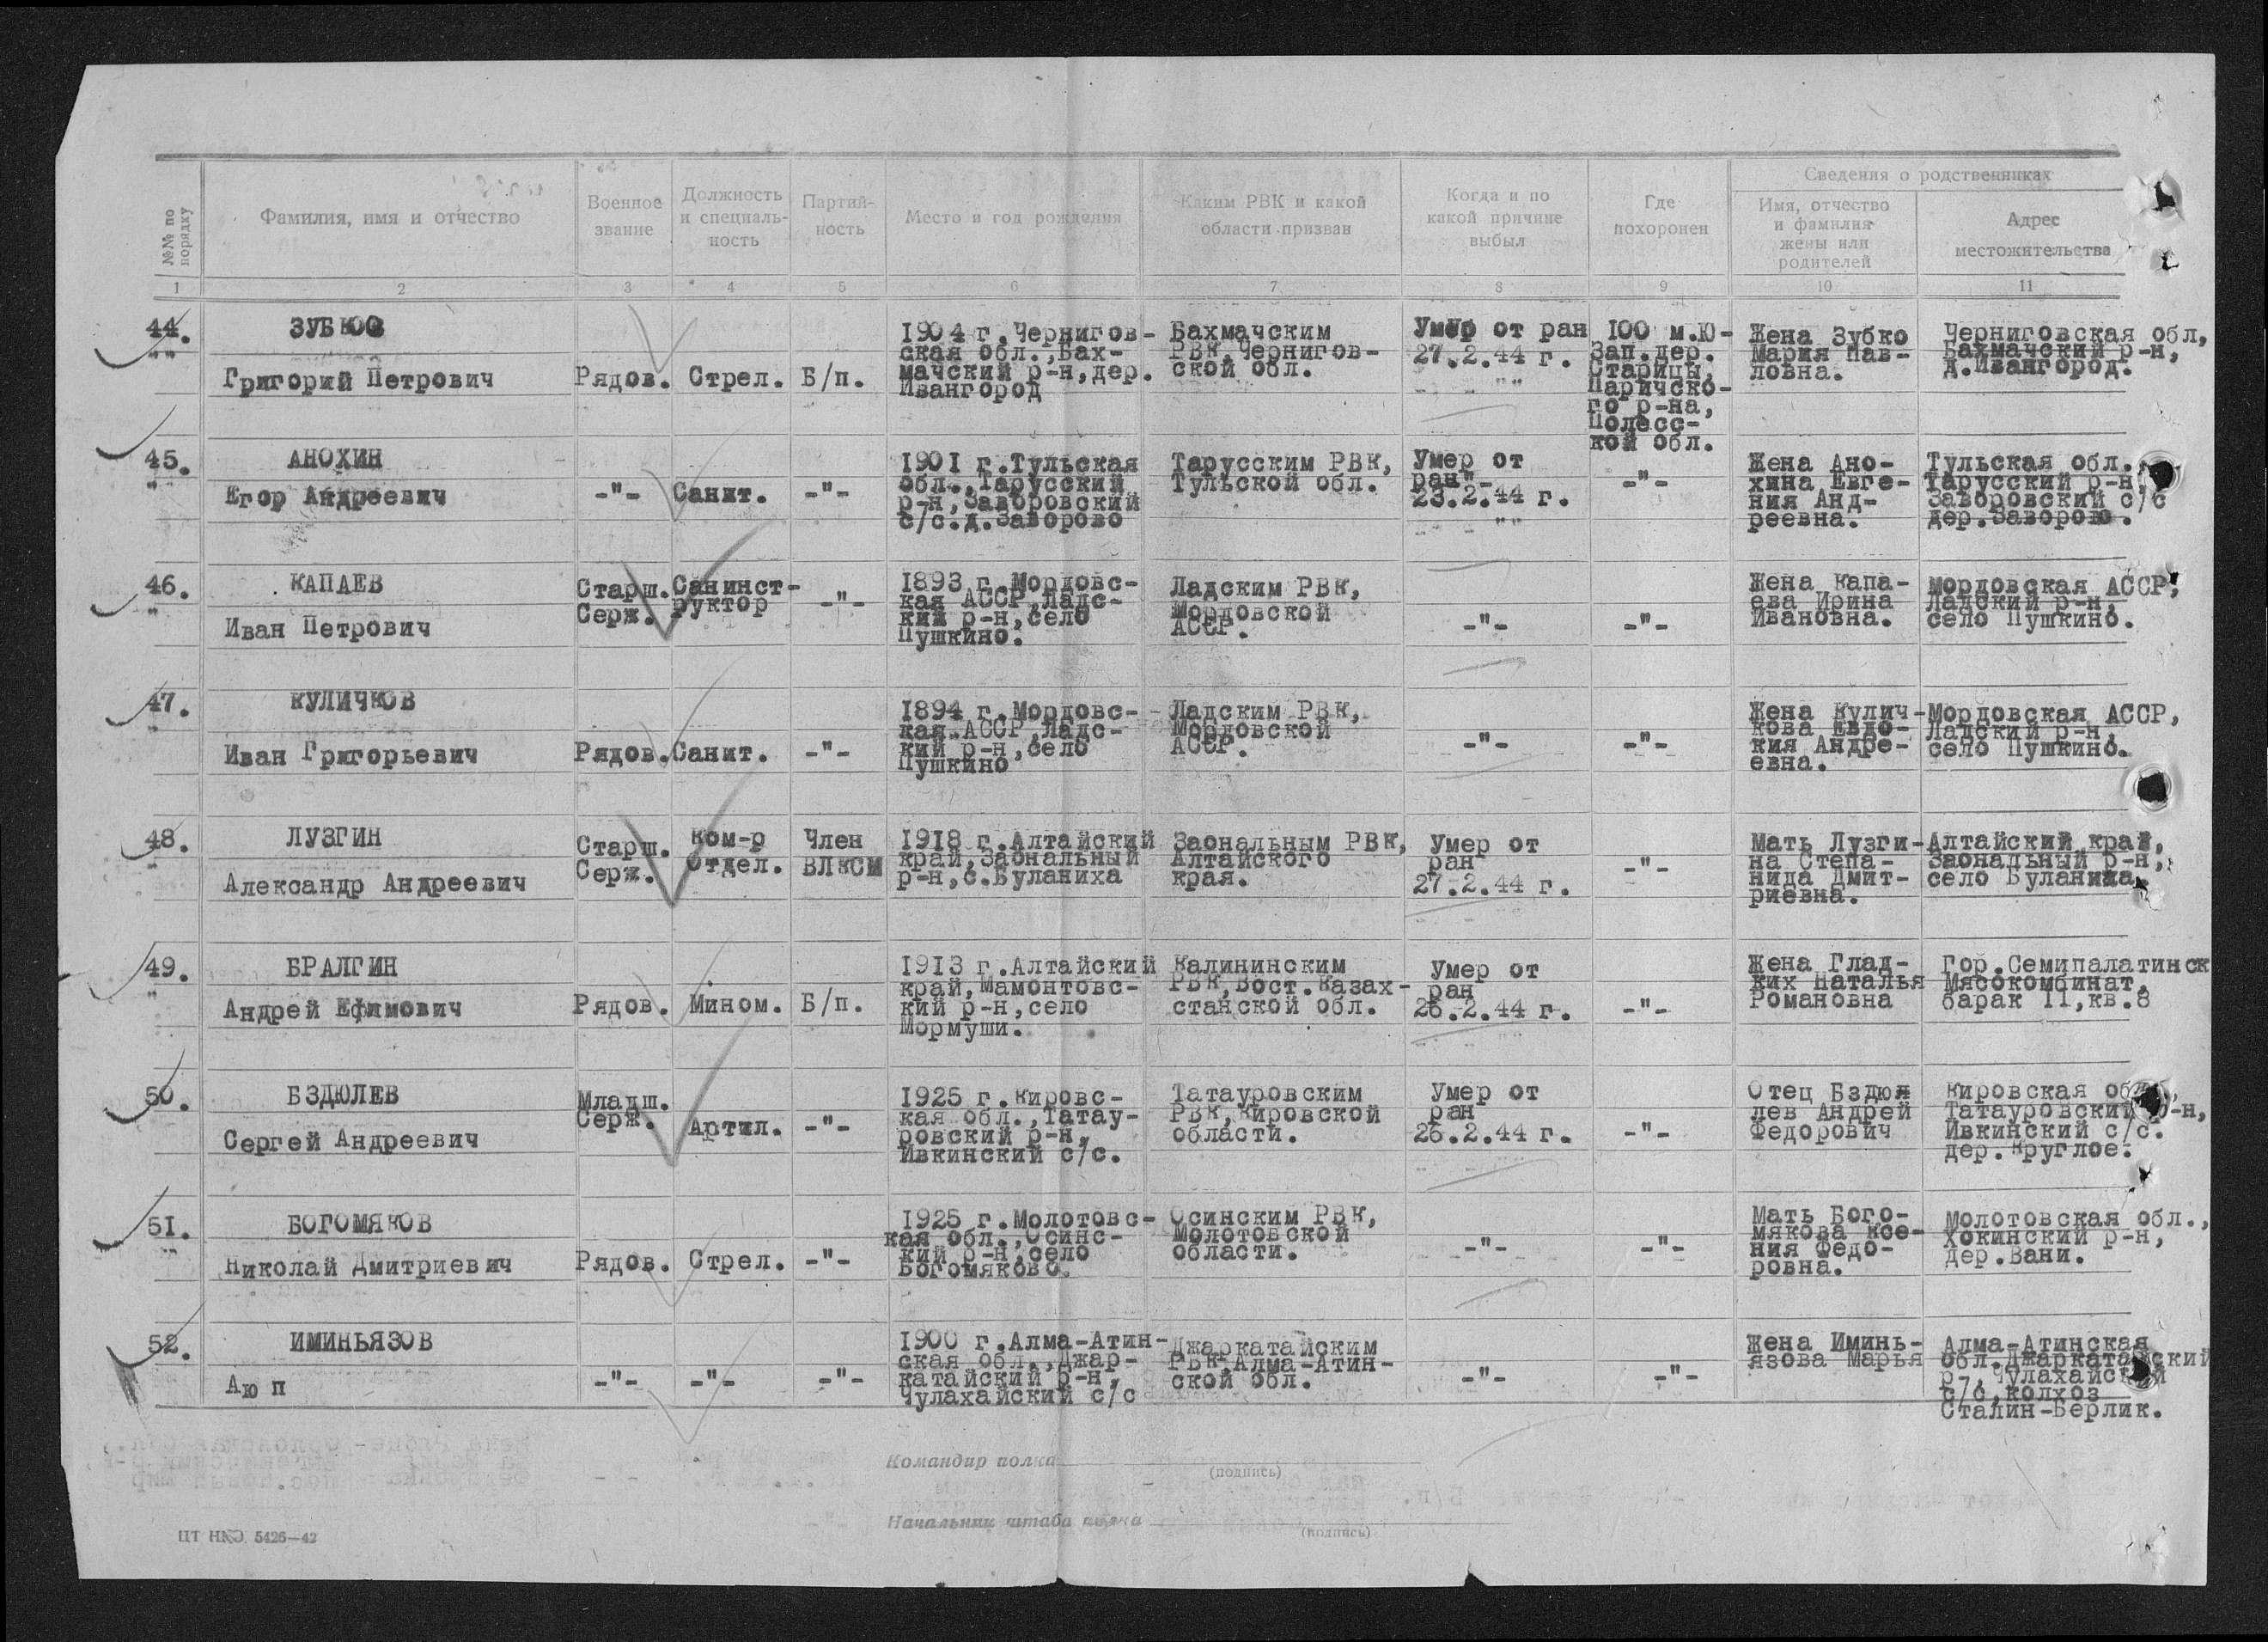 №№ по порядку
Фамилия, имя и отчество
Военное звание
Должность и специаль-ность
Партий-ность
Место и год рождения
Каким РВК и какой области призван
Когда и по какой причине выбыл
Где похоронен
Сведения о родственниках
Имя, отчество и фамилия жены или родителей
Адрес местожительства
1 2 3 4 5 6 7 8 9 10 11
44.
ЗУБКО
Григорий Петрович
Рядов.
Стрел.
Б/п.
1904 г.Чернигов-
ская обл.,Бах-
мачский р-н,дер.
Ивангород
Бахмачским
РВК,Чернигов-
ской обл.
Умер от ран
27.2.44 г.
100 м.Ю-
Зап.дер.
Старицы,
Паричско-
го р-на,
Полесс-
кой обл.
Жена Зубко
Мария Пав-
ловна.
Черниговская обл,
Бахмачский р-н,
д.Ивангород.
45.
АНОХИН
Егор Андреевич
-"-
Санит.
-"-
1901 г.Тульская
обл.,Тарусский
р-н,Заворовский
с/с.д.Заворово
Тарусским РВК,
Тульской обл.
Умер от
ран
23.2.44 г.
-"-
Жена Ано-
хина Евге-
ния Анд-
реевна.
Тульская обл.,
Тарусский р-н,
Заворовский с/с
дер.Заворово.
46.
КАПАЕВ
Иван Петрович
Старш.
Серж.
Санинст-
руктор
-"-
1893 г.Мордовс-
кая АССР,Ладс-
кий р-н,село
Пушкино.
Ладским РВК,
Мордовской
АССР.
-"-
-"-
Жена Капа-
ева Ирина
Ивановна.
Мордовская АССР,
Ладский р-н,
село Пушкино.
47.
КУЛИЧКОВ
Иван Григорьевич
Рядов.
Санит.
-"-
1894 г.Мордовс-
кая АССР,Ладс-
кий р-н,село
Пушкино
Ладским РВК,
Мордовской
АССР.
-"-
-"-
Жена Кулич-
кова Евдо-
кия Андре-
евна.
Мордовская АССР,
Ладский р-н,
село Пушкино.
48.
ЛУЗГИН
Александр Андреевич
Старш.
Серж.
Ком-р
Отдел.
Член
ВЛКСМ
1918 г.Алтайский
край,Заональный
р-н,с.Буланиха
Заональным РВК,
Алтайского
края.
Умер от
ран
27.2.44 г.
-"-
Мать Лузги-
на Степа-
нида Дмит-
риевна.
Алтайский край,
Заональный р-н,
село Буланиха.
49.
БРАЛГИН
Андрей Ефимович
Рядов.
Мином.
Б/п.
1913 г.Алтайский
край,Мамонтовс-
кий р-н,село
Мормуши.
Калининским
РВК,Вост.Казах-
станской обл.
Умер от
ран
26.2.44 г.
-"-
Жена Глад-
ких Наталья
Романовна
Гор.Семипалатинск
Мясокомбинат,
барак 11,кв.8
50.
БЗДЮЛЕВ
Сергей Андреевич
Младш.
Серж.
Артил.
-"-
1925 г.Кировс-
кая обл.,Татау-
ровский р-н,
Ивкинский с/с.
Татауровским
РВК,Кировской
области.
Умер от
ран
26.2.44 г.
-"-
Отец Бздюл
лев Андрей
Федорович
Кировская обл.,
Татауровский р-н,
Ивкинский с/с.
дер.Круглое.
51.
БОГОМЯКОВ
Николай Дмитриевич
Рядов.
Стрел.
-"-
1925 г.Молотовс-
кая обл.,Осинс-
кий р-н,село
Богомяково.
Осинским РВК,
Молотовской
области.
-"-
-"-
Мать Бого-
мякова Ксе-
ния Федо-
ровна.
Молотовская обл.,
Хокинский р-н,
дер.Вани.
52.
ИМИНЬЯЗОВ
Аюп
-"-
-"-
-"-
1900 г.Алма-Атин-
ская обл.,Джар-
катайский р-н,
Чулахайский с/с
Джаркатайским
РВК,Алма-Атин-
ской обл.
-"-
-"-
Жена Иминь-
язова Марья
Алма-Атинская
обл.Джаркатайский
р-,Чулахайский
с/с,колхоз
Сталин-Берлик.
Командир полка
(подпись)
Начальник штаба полка
(подпись)
ЦТ НКО 5426—42